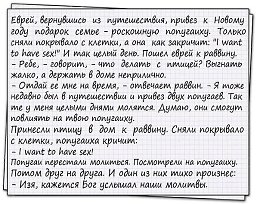 Еврей, вернувшись из путешествия, привез к Новому
году подарок семье - роскошную попугаиху. Только
сняли покрывало с клетки, а она как закричит: "I want
to have sex!" И так целый день. Пошел еврей к раввину.
- Ребе, - говорит, - что делать с птицей? Выгнать
жалко, а держать в доме неприлично.
- Отдай ее мне на время, - отвечает раввин. - Я тоже
недавно был в путешествии и привез двух попугаев. Так
те у меня целыми днями молятся. Думаю, они смогут
повлиять на твою попугаиху.
Принесли птицу в дом к раввину. Сняли покрывало
с клетки, попугаиха кричит:
- I want to have sex!
Попугаи перестали молиться. Посмотрели на попугаиху.
Потом друг на друга. И один из них тихо произнес:
- Изя, кажется Бог услышал наши молитвы.